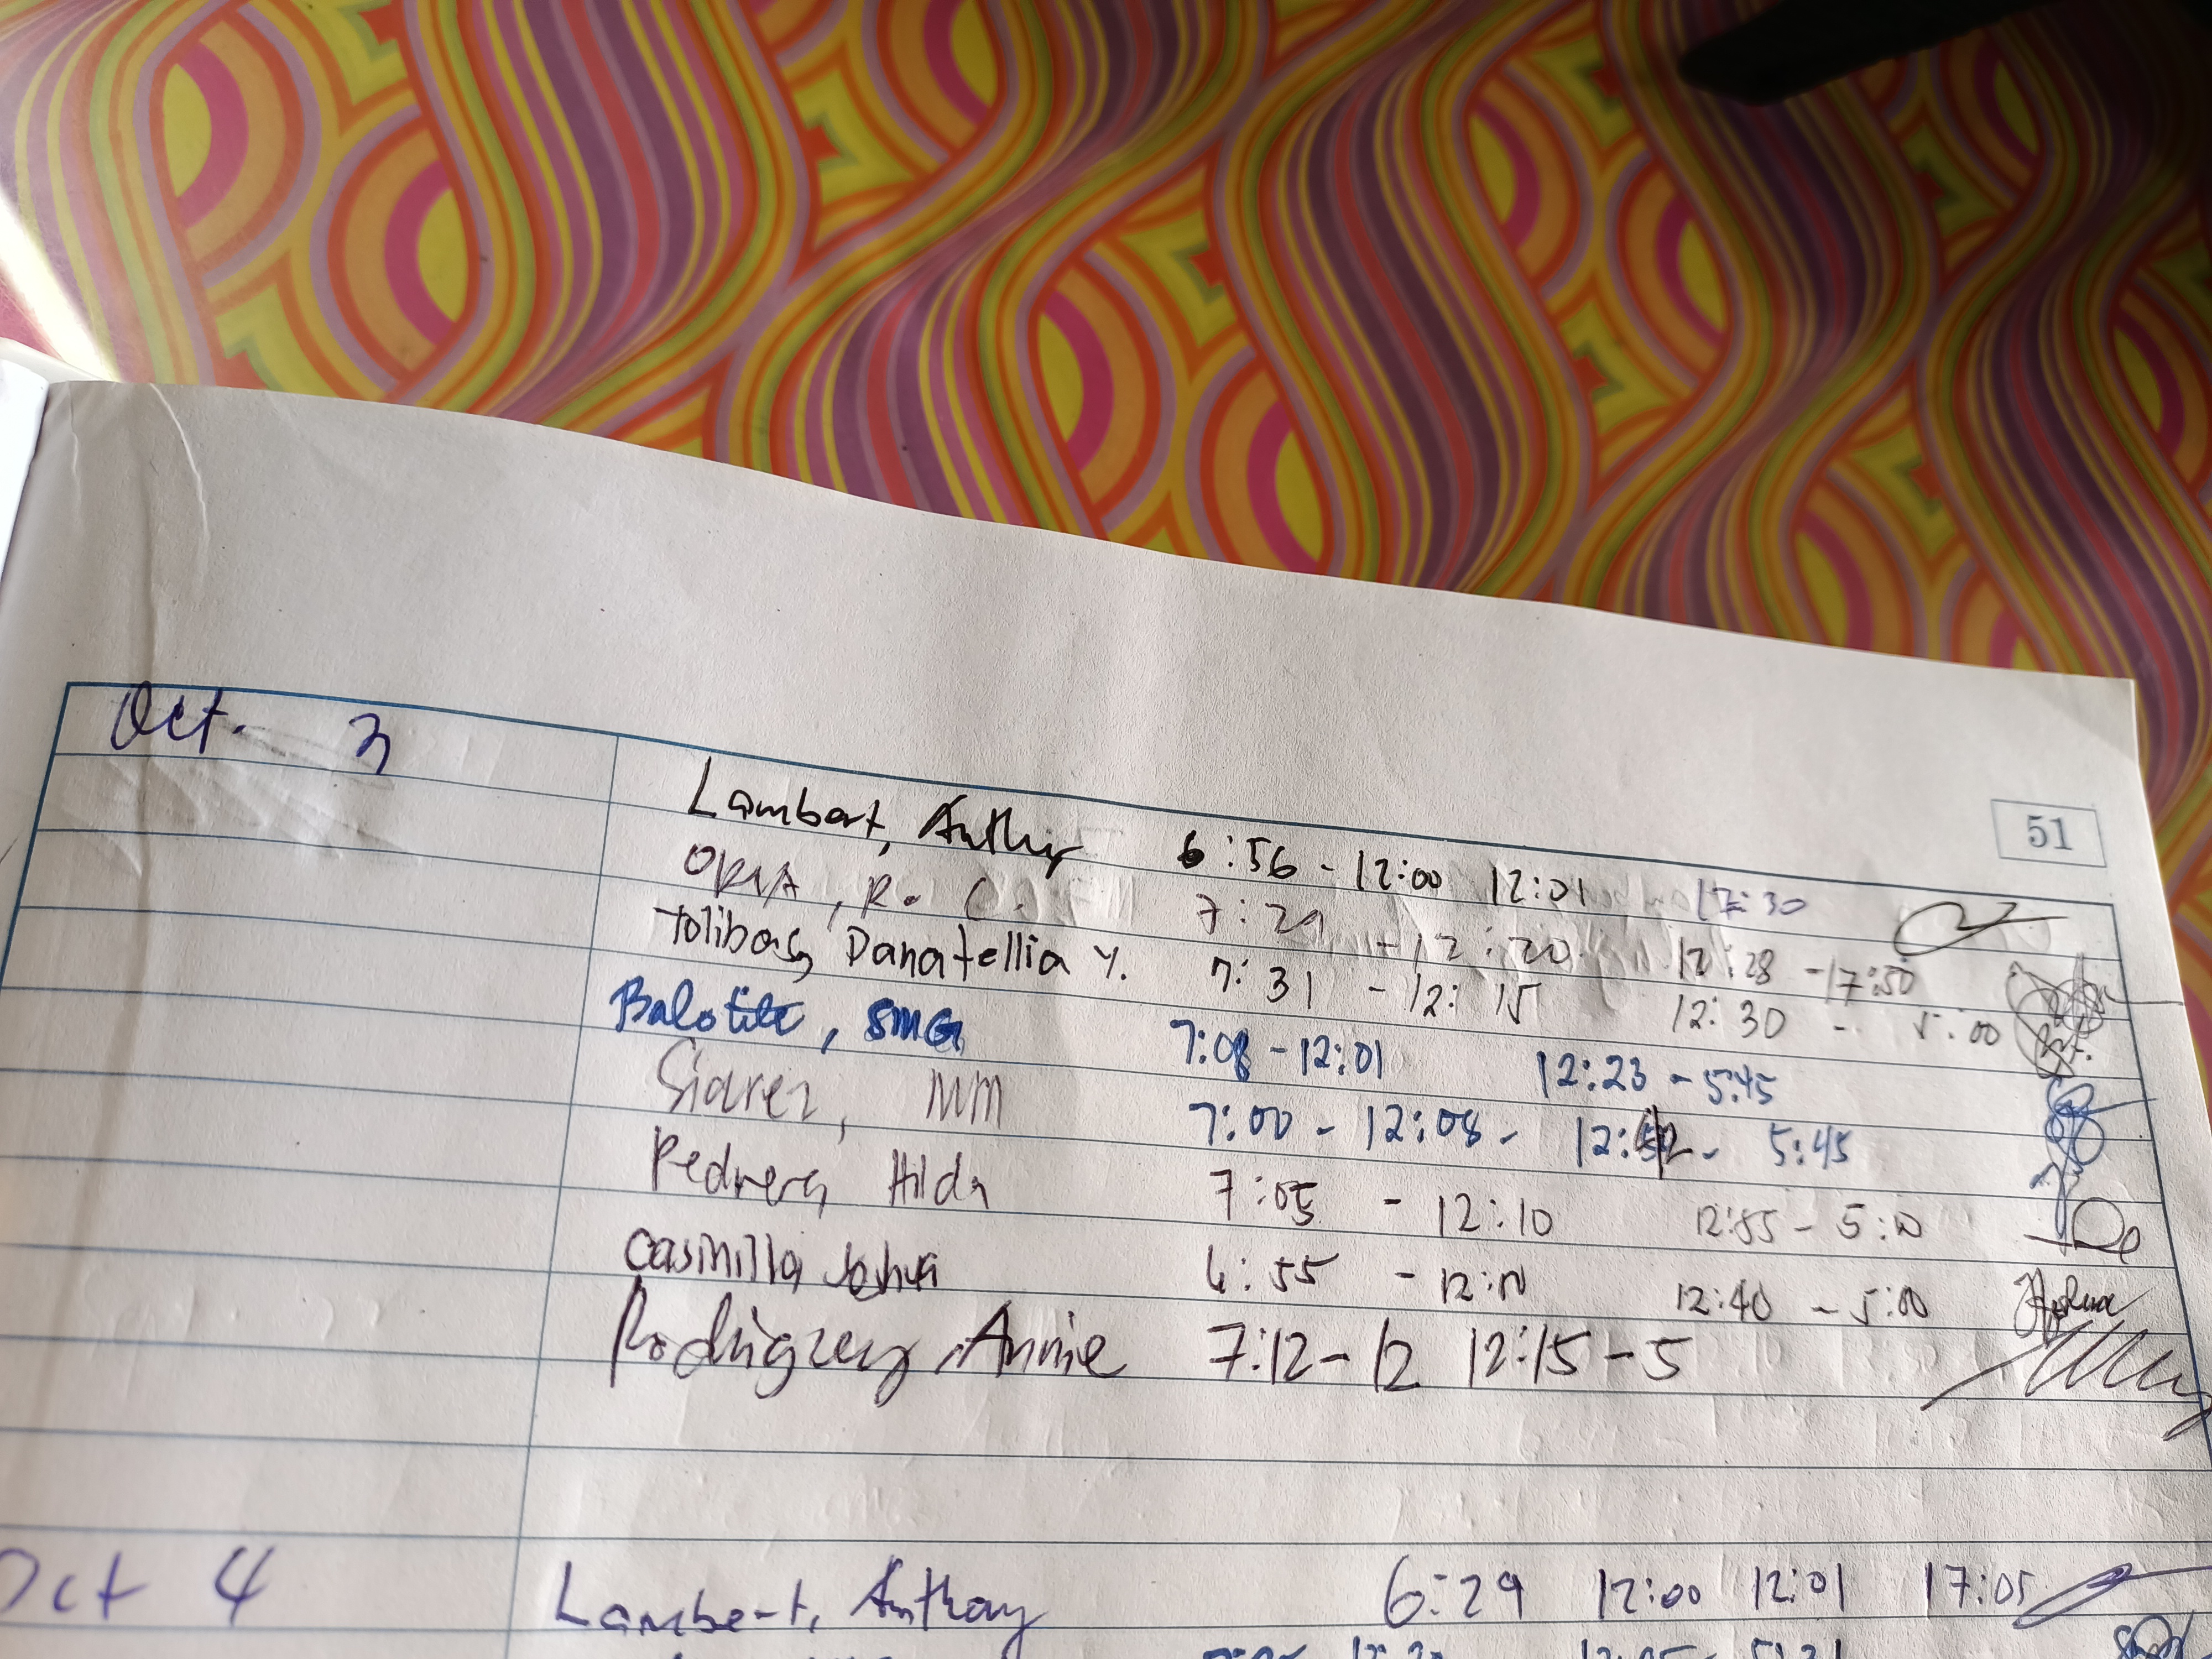 51
Oct. 3
Lambert, Anthony 6:56 - 12:00 12:01 17:30
R. C. 7:29 - 12:20 12:28 - 17:50
Tolibas, Danatellia Y. 7:31 - 12:15 12:30 - 5:00
Balotite, SMG 7:08 - 12:01 12:23 - 5:45
Siarez, MM 7:00 - 12:08 - - 5:45
Pedrera, Hilda 7:05 - 12:10 12:55 - 5:10
Casinilla Joshua 6:55 - 12:10 12:40 - 5:00 Joshua
Rodriguez, Annie 7:12 - 12 12:15 - 5
Oct 4 Lambert, Anthony 6:29 12:00 12:01 17:05